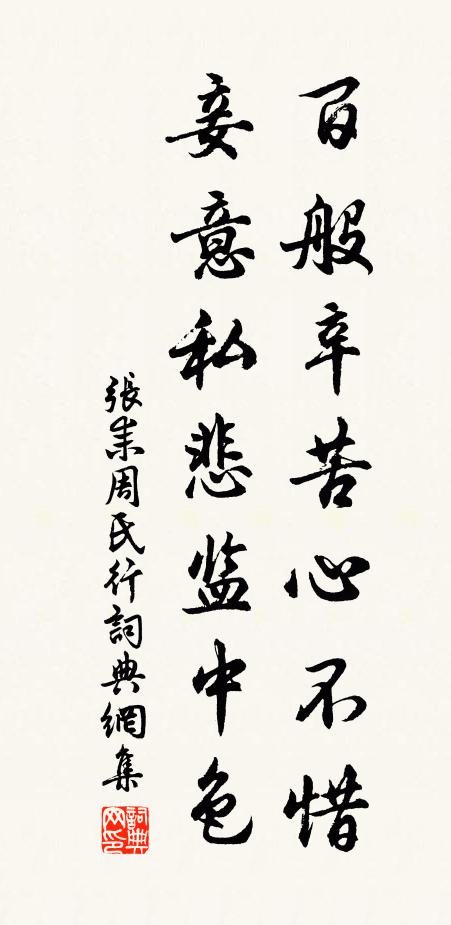 百般辛苦心不惜
妾意私悲监中色
張耒周氏行詞典網集
詞典网印